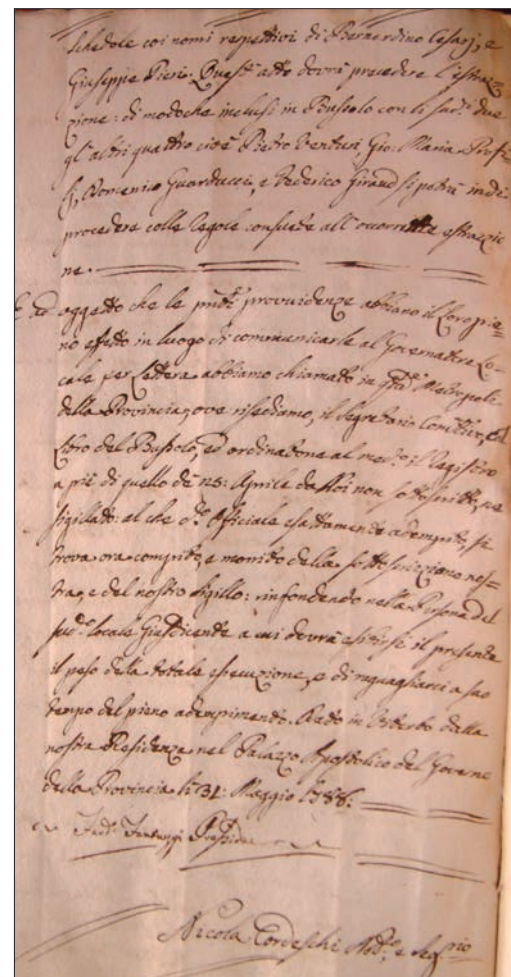 Schedole coi nomi respettivi di Bernardino Cesarj, e
Giuseppe Pieri. Quest'atto dovrà precedere l'estraz=
zione: di modoche inclusi in Bussolo con li sud.i due
gl'altri quattro cioè Pietro Venturi, Gio: Maria Profi
Domenico Guarducci, e Federico Giraud si potrà indi
procedere colle regole consuete all'occorrente estrazio
ne.
E ad oggetto che le pnti provvidenze abbiano il loro pie=
no effetto in luogo di communicarle al Governatore Lo=
cale per Lettera abbiamo chiamato in qta Metropoli
della Provincia, ove risediamo, il Segretario Comttivo, ed
Libro del Bussolo, ed ordinatone al med.o il registro
a piè di quello de 25: Aprile da Noi non sottoscritto, ne
sigillato: al che d.o Officiale esattamente adempito, si
trova ora compito, e munito della sottoscrizione nos=
tra, e del nostro sigillo: infondendo nella Persona del
sud.o locale Giusdicente a cui dovrà esibirsi il presente
il peso della totale esecuzione, e di raguagliarci a suo
tempo del pieno adempimento. Dato in Viterbo dalla
nostra Residenza nel Palazzo Apostolico del Governo
della Provincia li 31: Maggio 1786:
Fantuzzi Preside
Nicola Cordeschi Not.o e Seg.rio